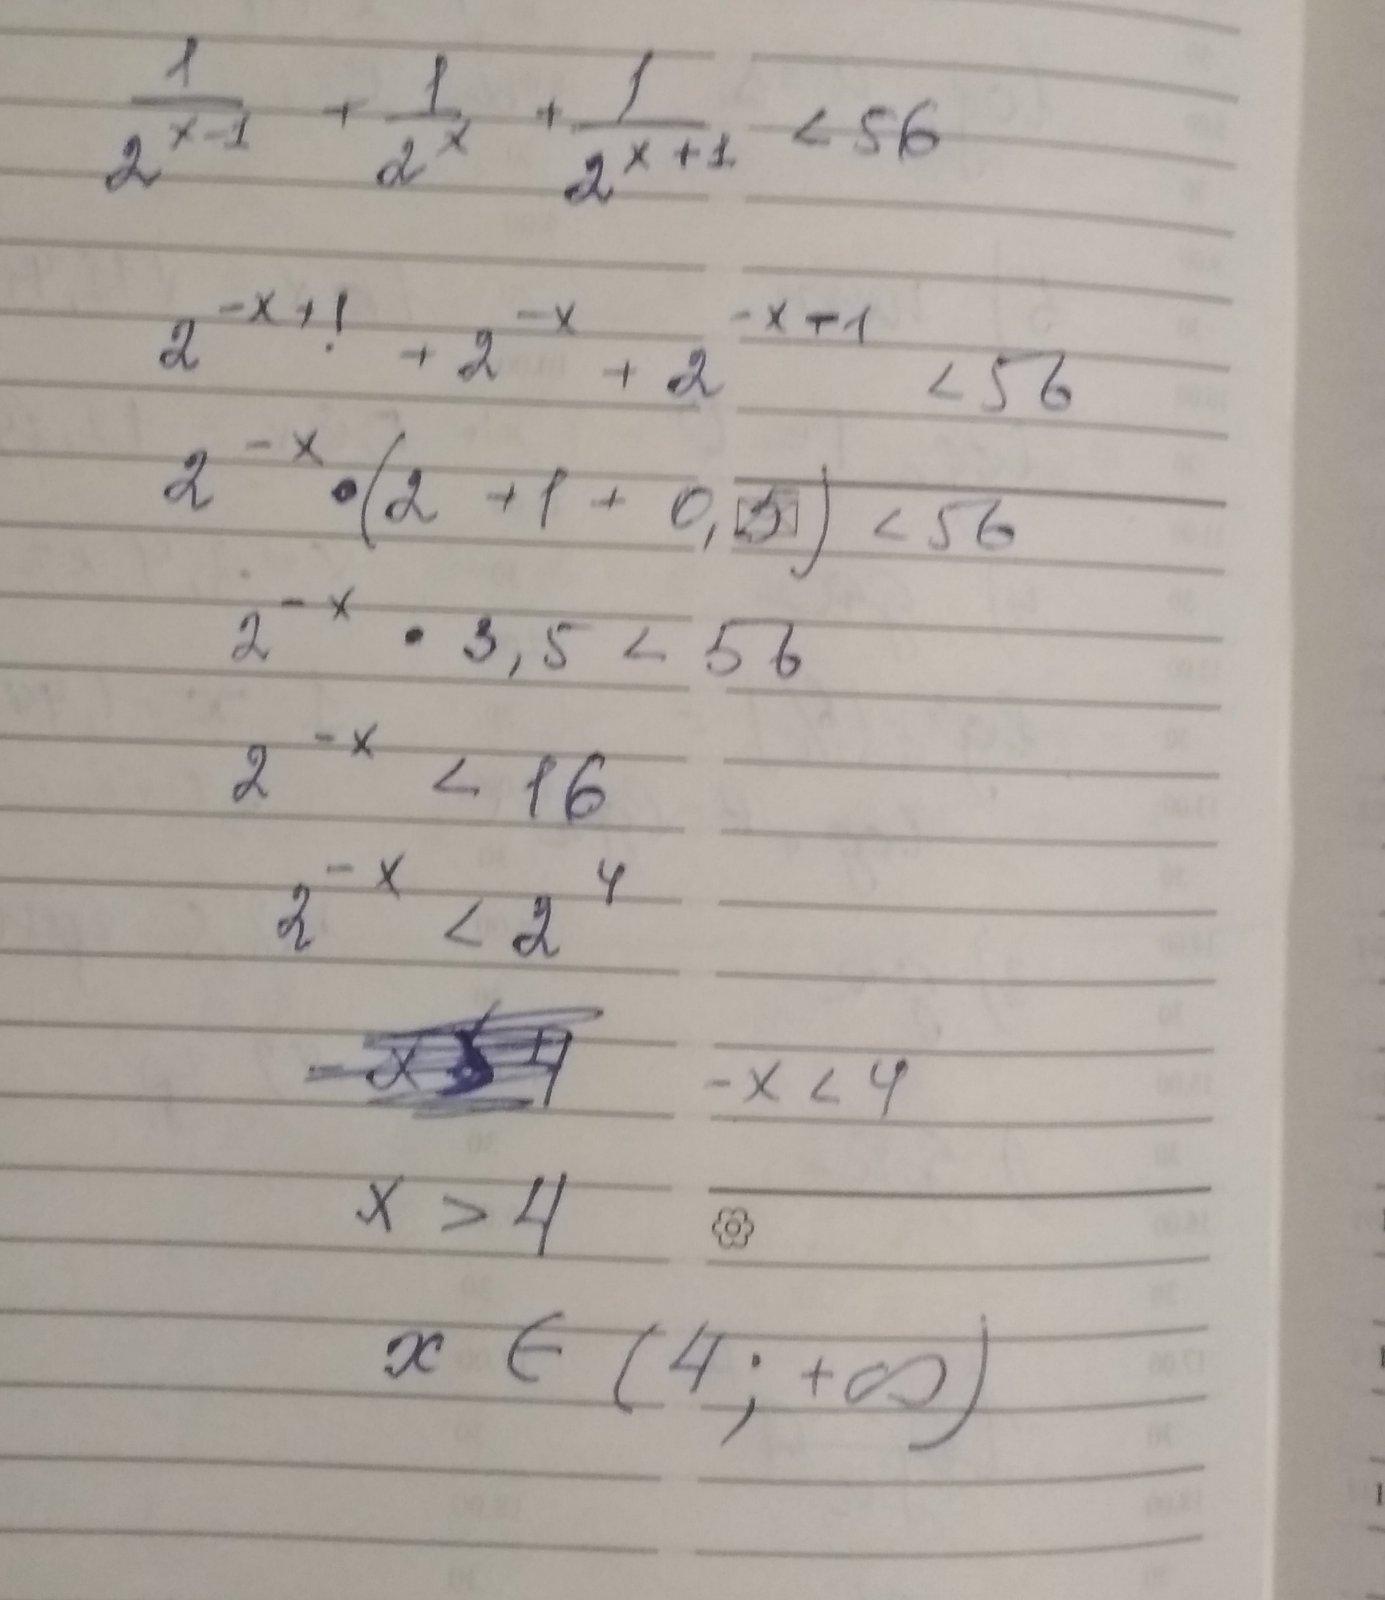 1/2^(x-1) + 1/2^x + 1/2^(x+1) < 56
2^(-x+1) + 2^(-x) + 2^(-x-1) < 56
2^(-x) • (2 + 1 + 0,5) < 56
2^(-x) • 3,5 < 56
2^(-x) < 16
2^(-x) < 2^4
-x < 4
x > 4
x ∈ (4; +∞)